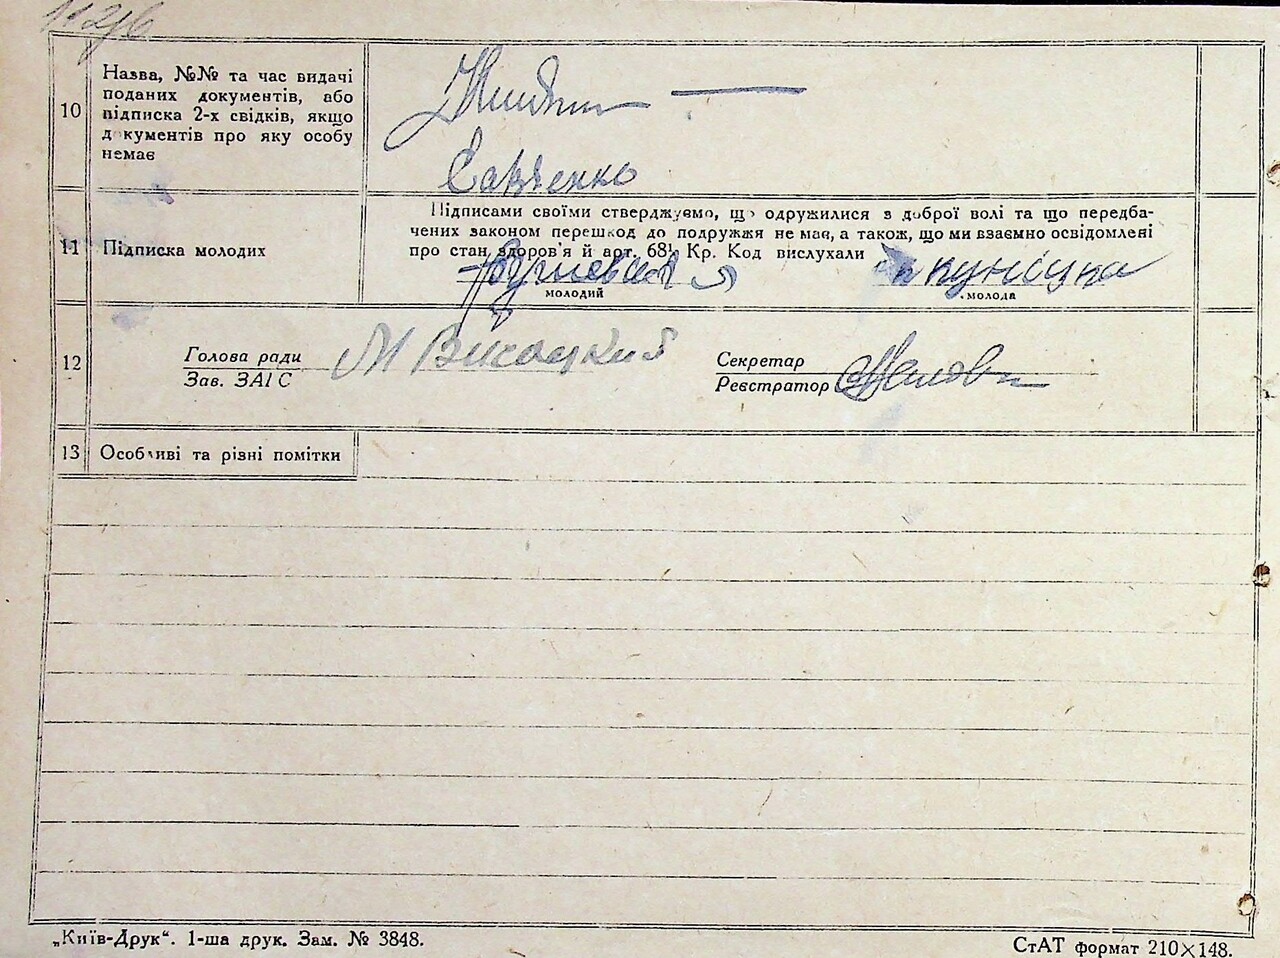 10
Назва, №№ та час видачі
поданих документів, або
підписка 2-х свідків, якщо
документів про яку особу
немає
Савченко
11
Підписка молодих
Підписами своїми стверджуємо, що одружилися з доброї волі та що передба-
чених законом перешкод до подружжя не має, а також, що ми взаємно освідомлені
про стан здоров'я й арт. 68¹ Кр. Код вислухали
молодий
молода
12
Голова ради
Зав. ЗАГС
М Висоцкий
Секретар
Реєстратор
13
Особливі та різні помітки
„Київ-Друк“. 1-ша друк. Зам. № 3848.
СтАТ формат 210×148.